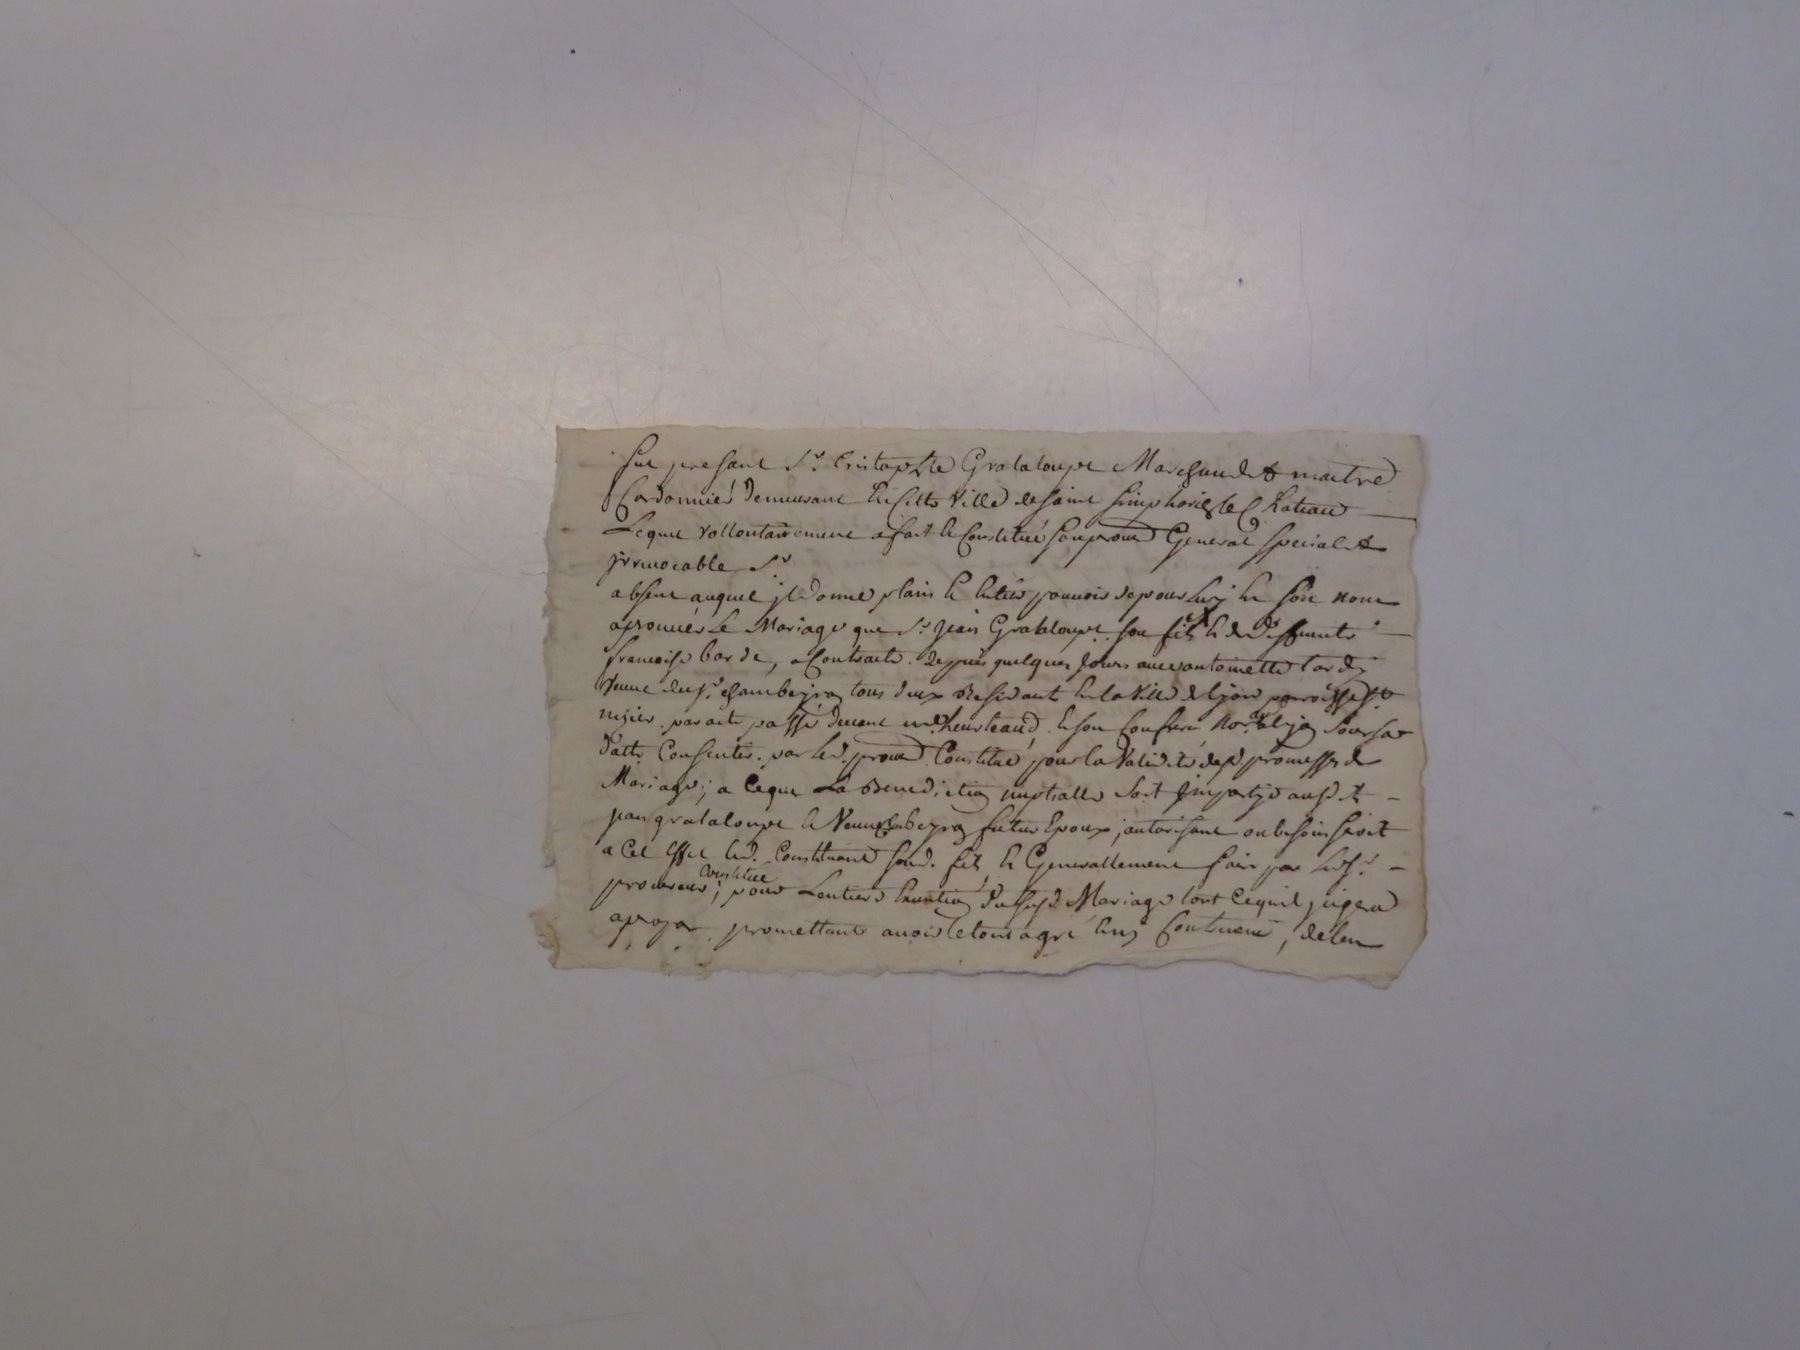 fut presant Sr. Cristophle Grataloupe Marchand & maitre
Cordonnier demeurant en cette ville de saint simphorien le Chateau
Lequel vollontairement a fait & Constitué son procur General special &
jrrevocable Sr
absent auquel jl donne plain & entier pouvoir de pour luy & son nom
aprouver le Mariage que Sr. jean Grataloupe son fils & de deffunte
francoise barde, a Contracté depuis quelques jours avec antoinette tardy
veuve du Sr. chambeyron tous deux Residant en la ville de lyon paroisse St.
nizier par acte passé devant & son Confrere Nore. a lyon sous sa
datte Consentir par led. procur Constitué pour la validité desd. promesses de
Mariage; a ceque La Benediction nuptialle soit jmpartye ausd. Sr.
jean grataloupe & veuve chambeyron futur Epoux, autorisant ou besoin seroit
a cet Effet led. Constituant sond. fils, & Generallement faire par led. Sr.
procureur Constitué, pour Lentiere Execution du susd. Mariage tout cequil jugera
apropos. promettant avoir le tout agré